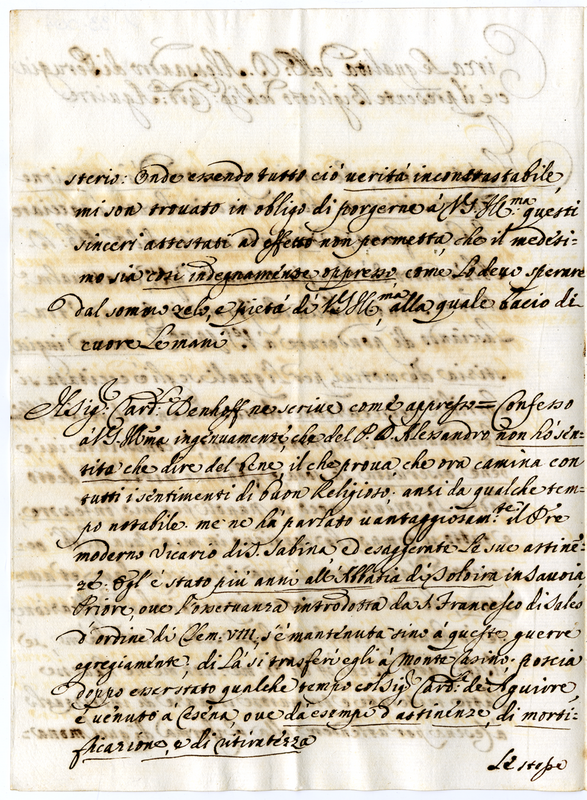 sterio: Onde essendo tutto ció verità incontrastabile,
mi son trovato in obligo di porgerne á V. S. Ill.ma questi
sinceri attestati ad effetto non permetta, che il medesi-
mo sia così indegnamente oppresso come lo devo sperare
dal sommo zelo, e pietá di V. S. Ill.ma, alla quale bacio di
cuore le mani
Il Sig.r Card.le Denhoff ne scrive come appresso = Confesso
á V. S. Ill.ma ingenuamente, che del P. D. Alessandro non hó sen-
tito che dire del bene, il che prova che ora camina con
tutti i sentimenti di buon Religioso, anzi da qualche tem-
po notabile me ne há parlato vantaggiosam.te il P're
moderno Vicario di S. Sabina ed esaggerate le sue astinen-
ze. Egl' é stato più anni all' Abbazia di in Savoia
Priore, ove l'osservanza introdotta da S. Francesco di Sales
d'ordine di Clem: VIII, s'é mantenuta sino á queste guerre
egregiamente, di lá si trasferi egli á Monte Casino, poscia
doppo esser stato qualche tempo col Sig.r Card.le de Aguirre
é venuto á Cesena, ove da esempi d'astinenze, di morti-
ficazione, e di ritiratezza
Lé stesse